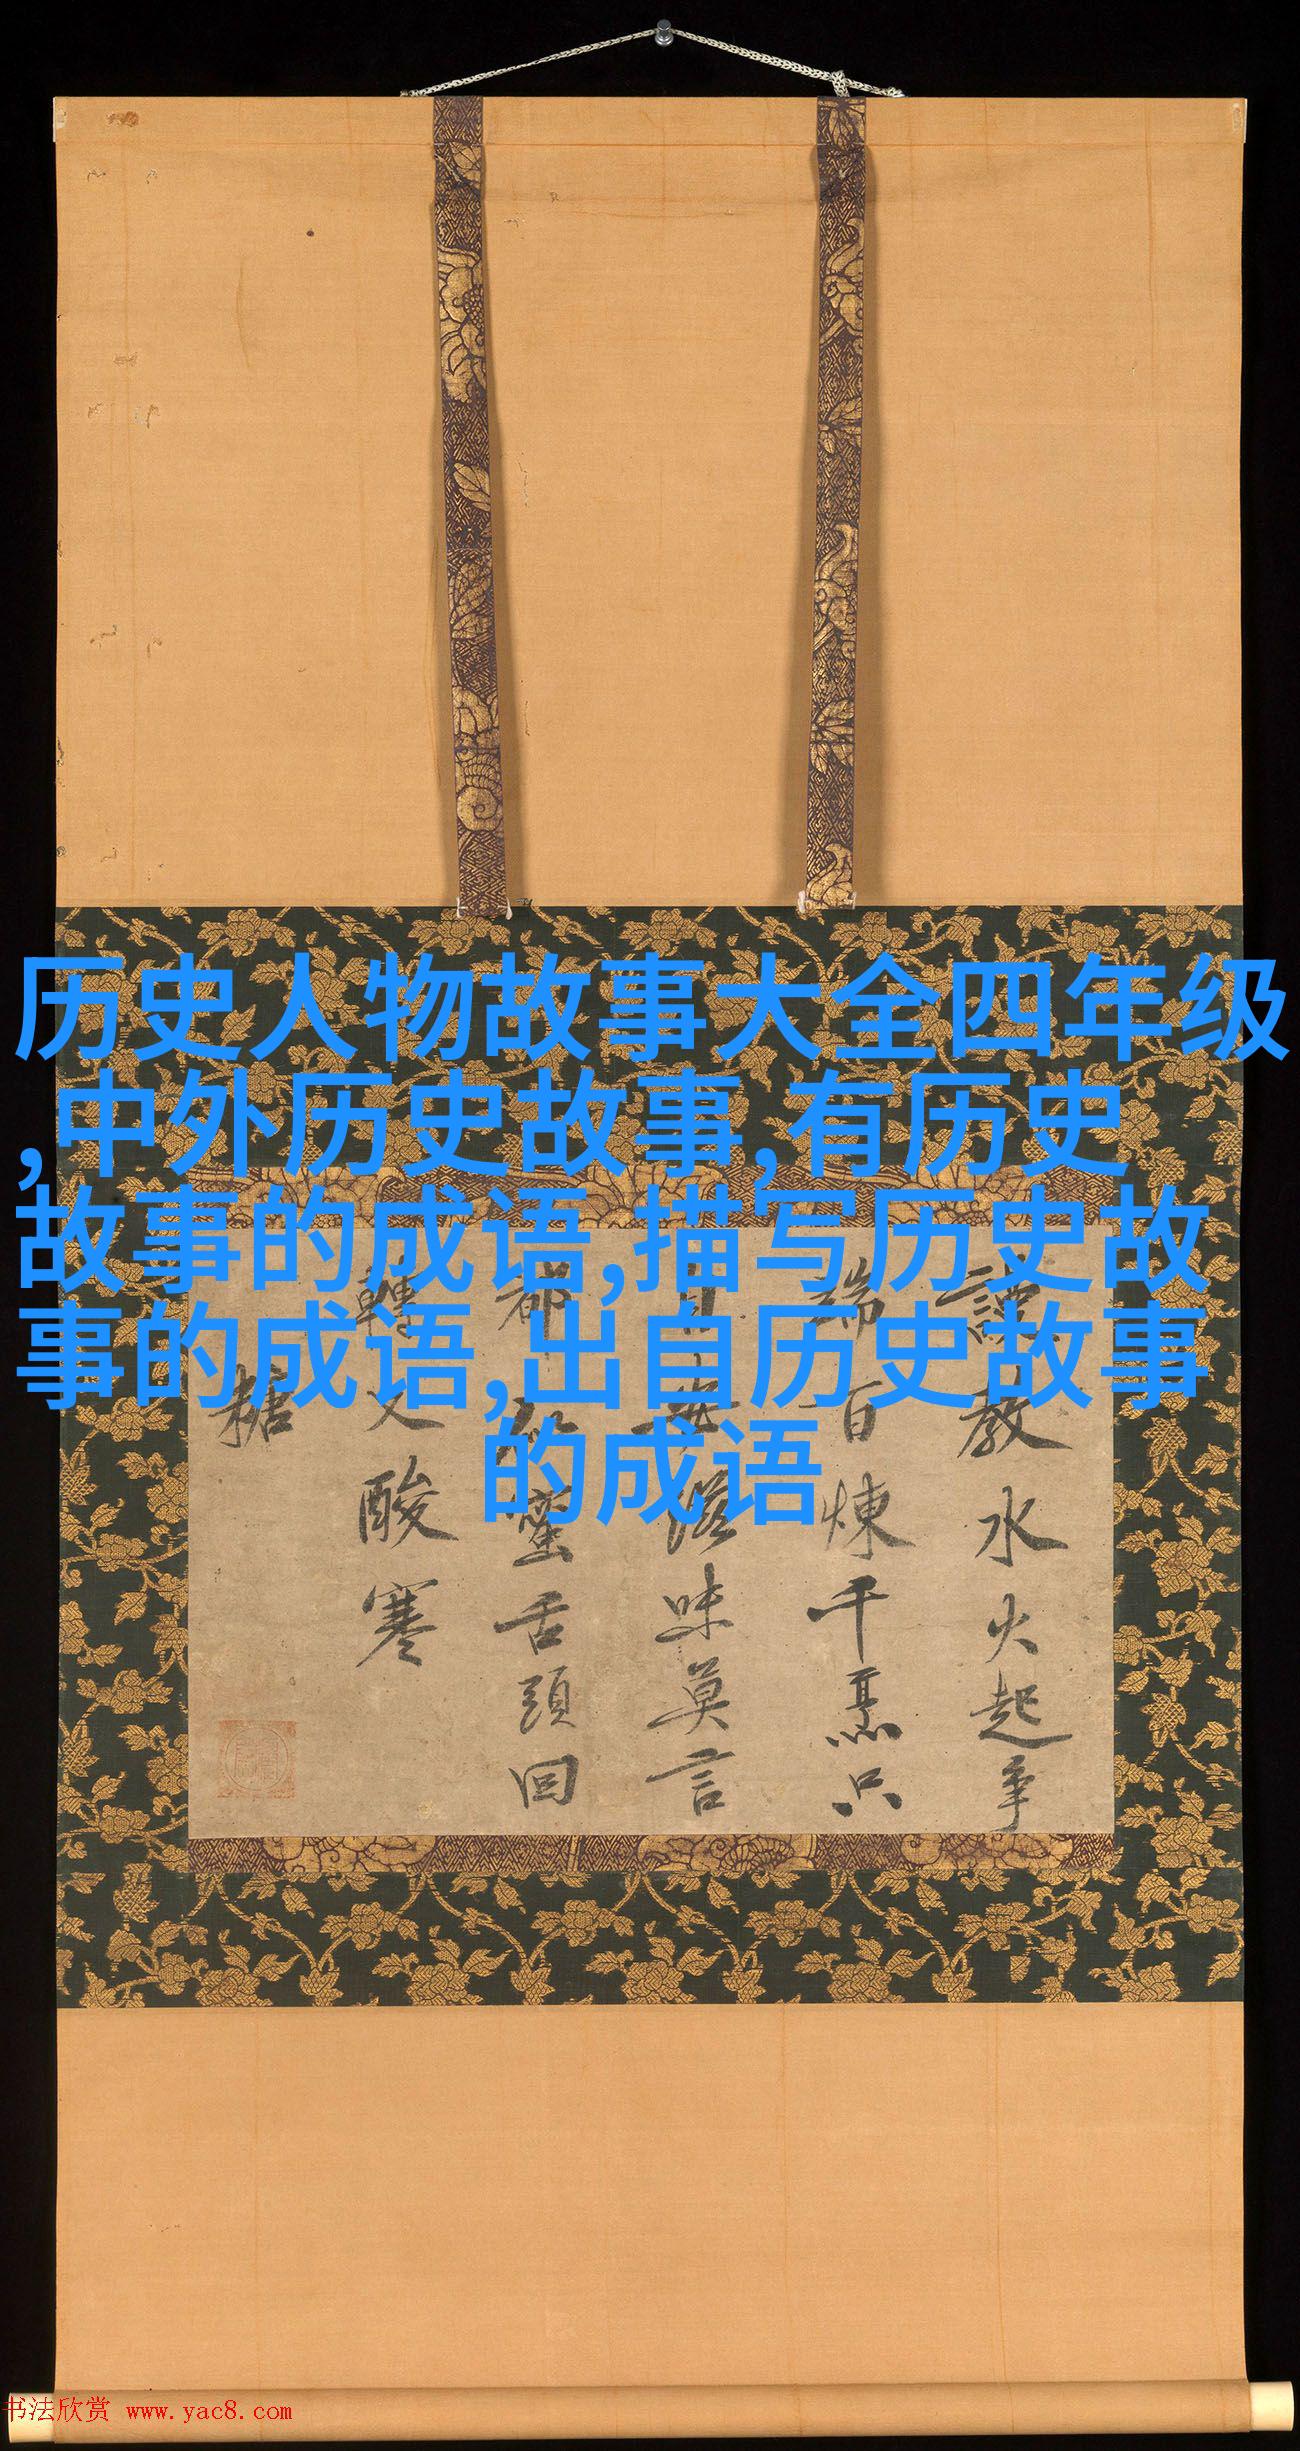 历史人物故事大全四年级
,中外历史故事,有历史
故事的成语,描写历史故
事的成语,出自历史故事
的成语
教水火起争
端百煉千烹只
滋味莫言
都
蜜舌頭回
轉
酸寒
糖
书法欣赏 www.yac8.com